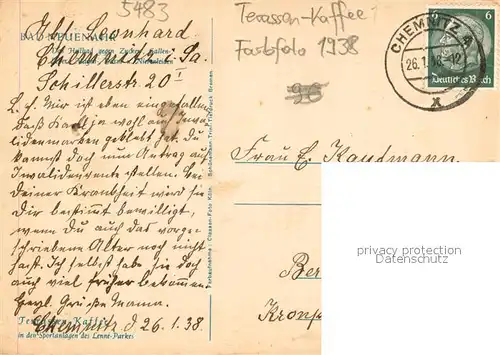 5483
Terassen-Kaffee
Farbfoto 1938
BAD NEUENAHR
Chemnitz Sa.
Schillerstr. 20 I
L. E. Mir ist eben eingefallen
daß Karl ja wohl auch Invaliden
marken geklebt hat. Du
kannst doch nun Antrag auf
Invalidenrente stellen. Bei
Deiner Krankheit wird sie
Dir bestimmt bewilligt,
wenn Du auch das vorge-
schriebene Alter noch nicht
hast. Ich selbst habe sie doch
auch viel früher bekommen.
Herzl. Grüße Mama.
Terrassen-Kaffee
Chemnitz d 26.1.38.
in den Sportanlagen des Lenné-Parkes
CHEMNITZ 4
26.1.38-12
x
6
Deutsches Reich
Frau E. Kaufmann.
Ber
Kronp
privacy protection
Datenschutz